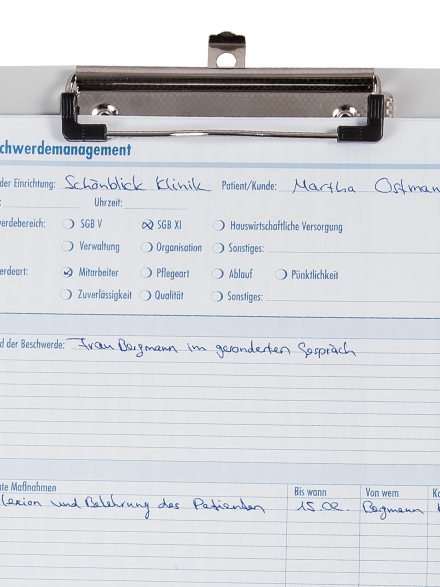 chwerdemanagement
der Einrichtung: Schönblick Klinik Patient/Kunde: Martha Ostman
: Uhrzeit:
erdebereich: SGB V SGB XI Hauswirtschaftliche Versorgung
Verwaltung Organisation Sonstiges:
erdeart: Mitarbeiter Pflegeart Ablauf Pünktlichkeit
Zuverlässigkeit Qualität Sonstiges:
d der Beschwerde: Frau Bergmann im gesonderten Gespräch
te Maßnahmen Bis wann Von wem Ko
lexion und Belehrung des Patienten 15.02. Bergmann